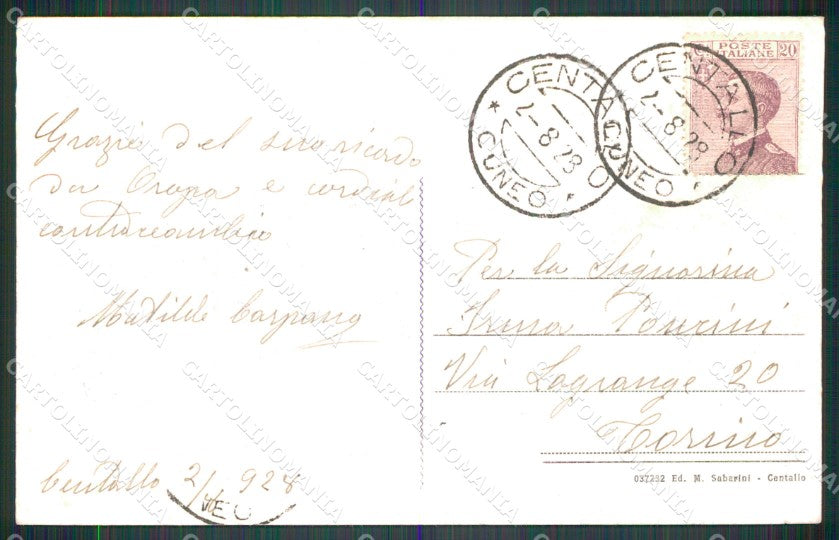 Grazie del suo ricordo
da Oropa e cordial
contraccambio
Matilde Carpano
Centallo 2/8 928
NEO
CENTALLO
CUNEO
2-8-28
CENTALLO
CUNEO
2-8-28
POSTE
ITALIANE
20
Per la Signorina
Irma
Via Lagrange 20
Torino
037232 Ed. M. Sabarini - Centallo
CARTOLINOMANIA